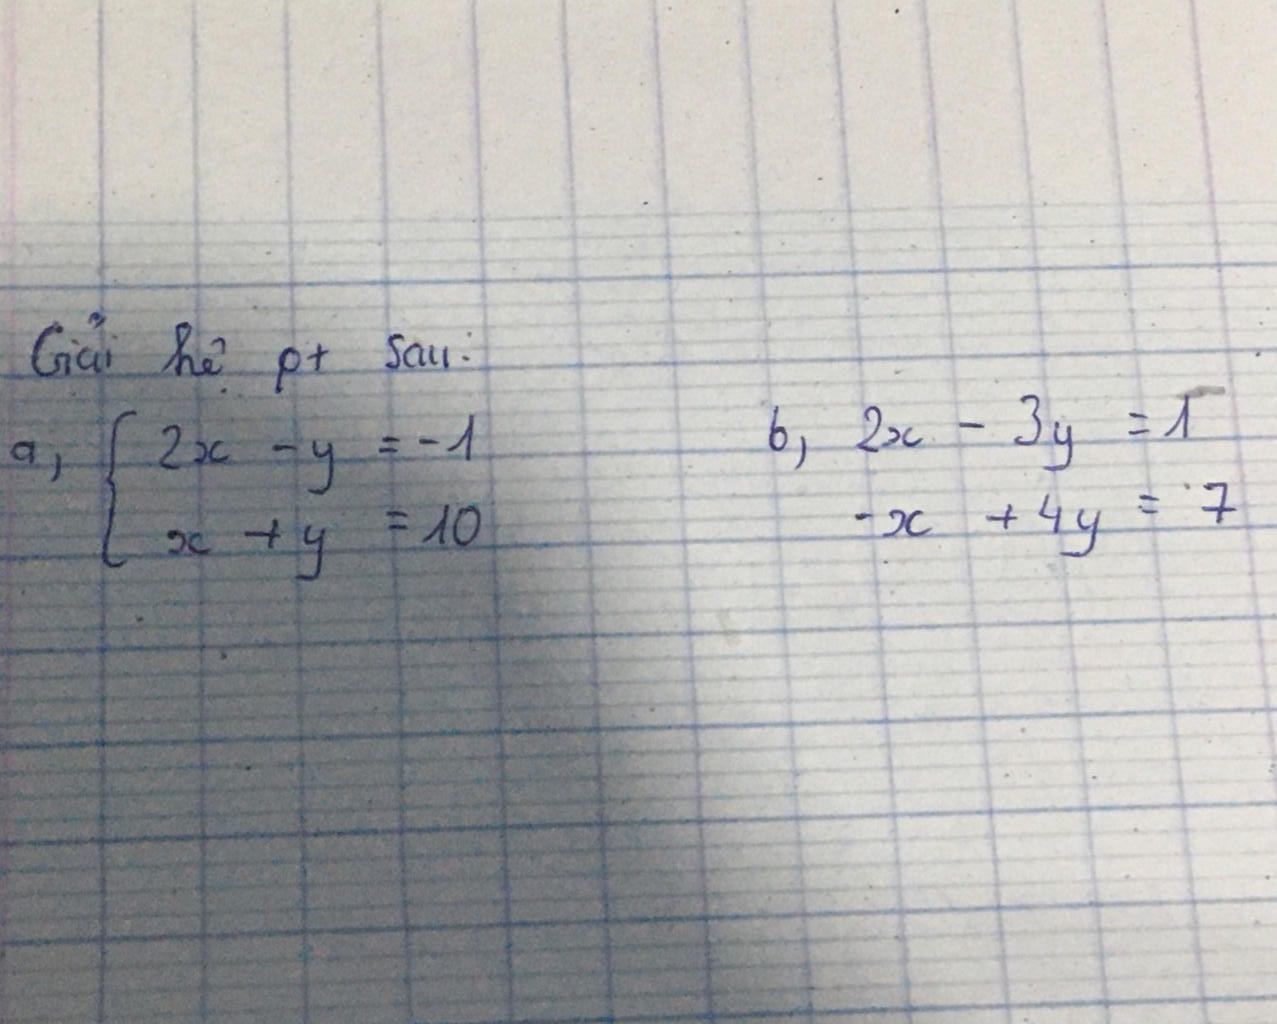 Giải hệ pt sau:
a, { 2x - y = -1
x + y = 10
b, 2x - 3y = 1
-x + 4y = 7